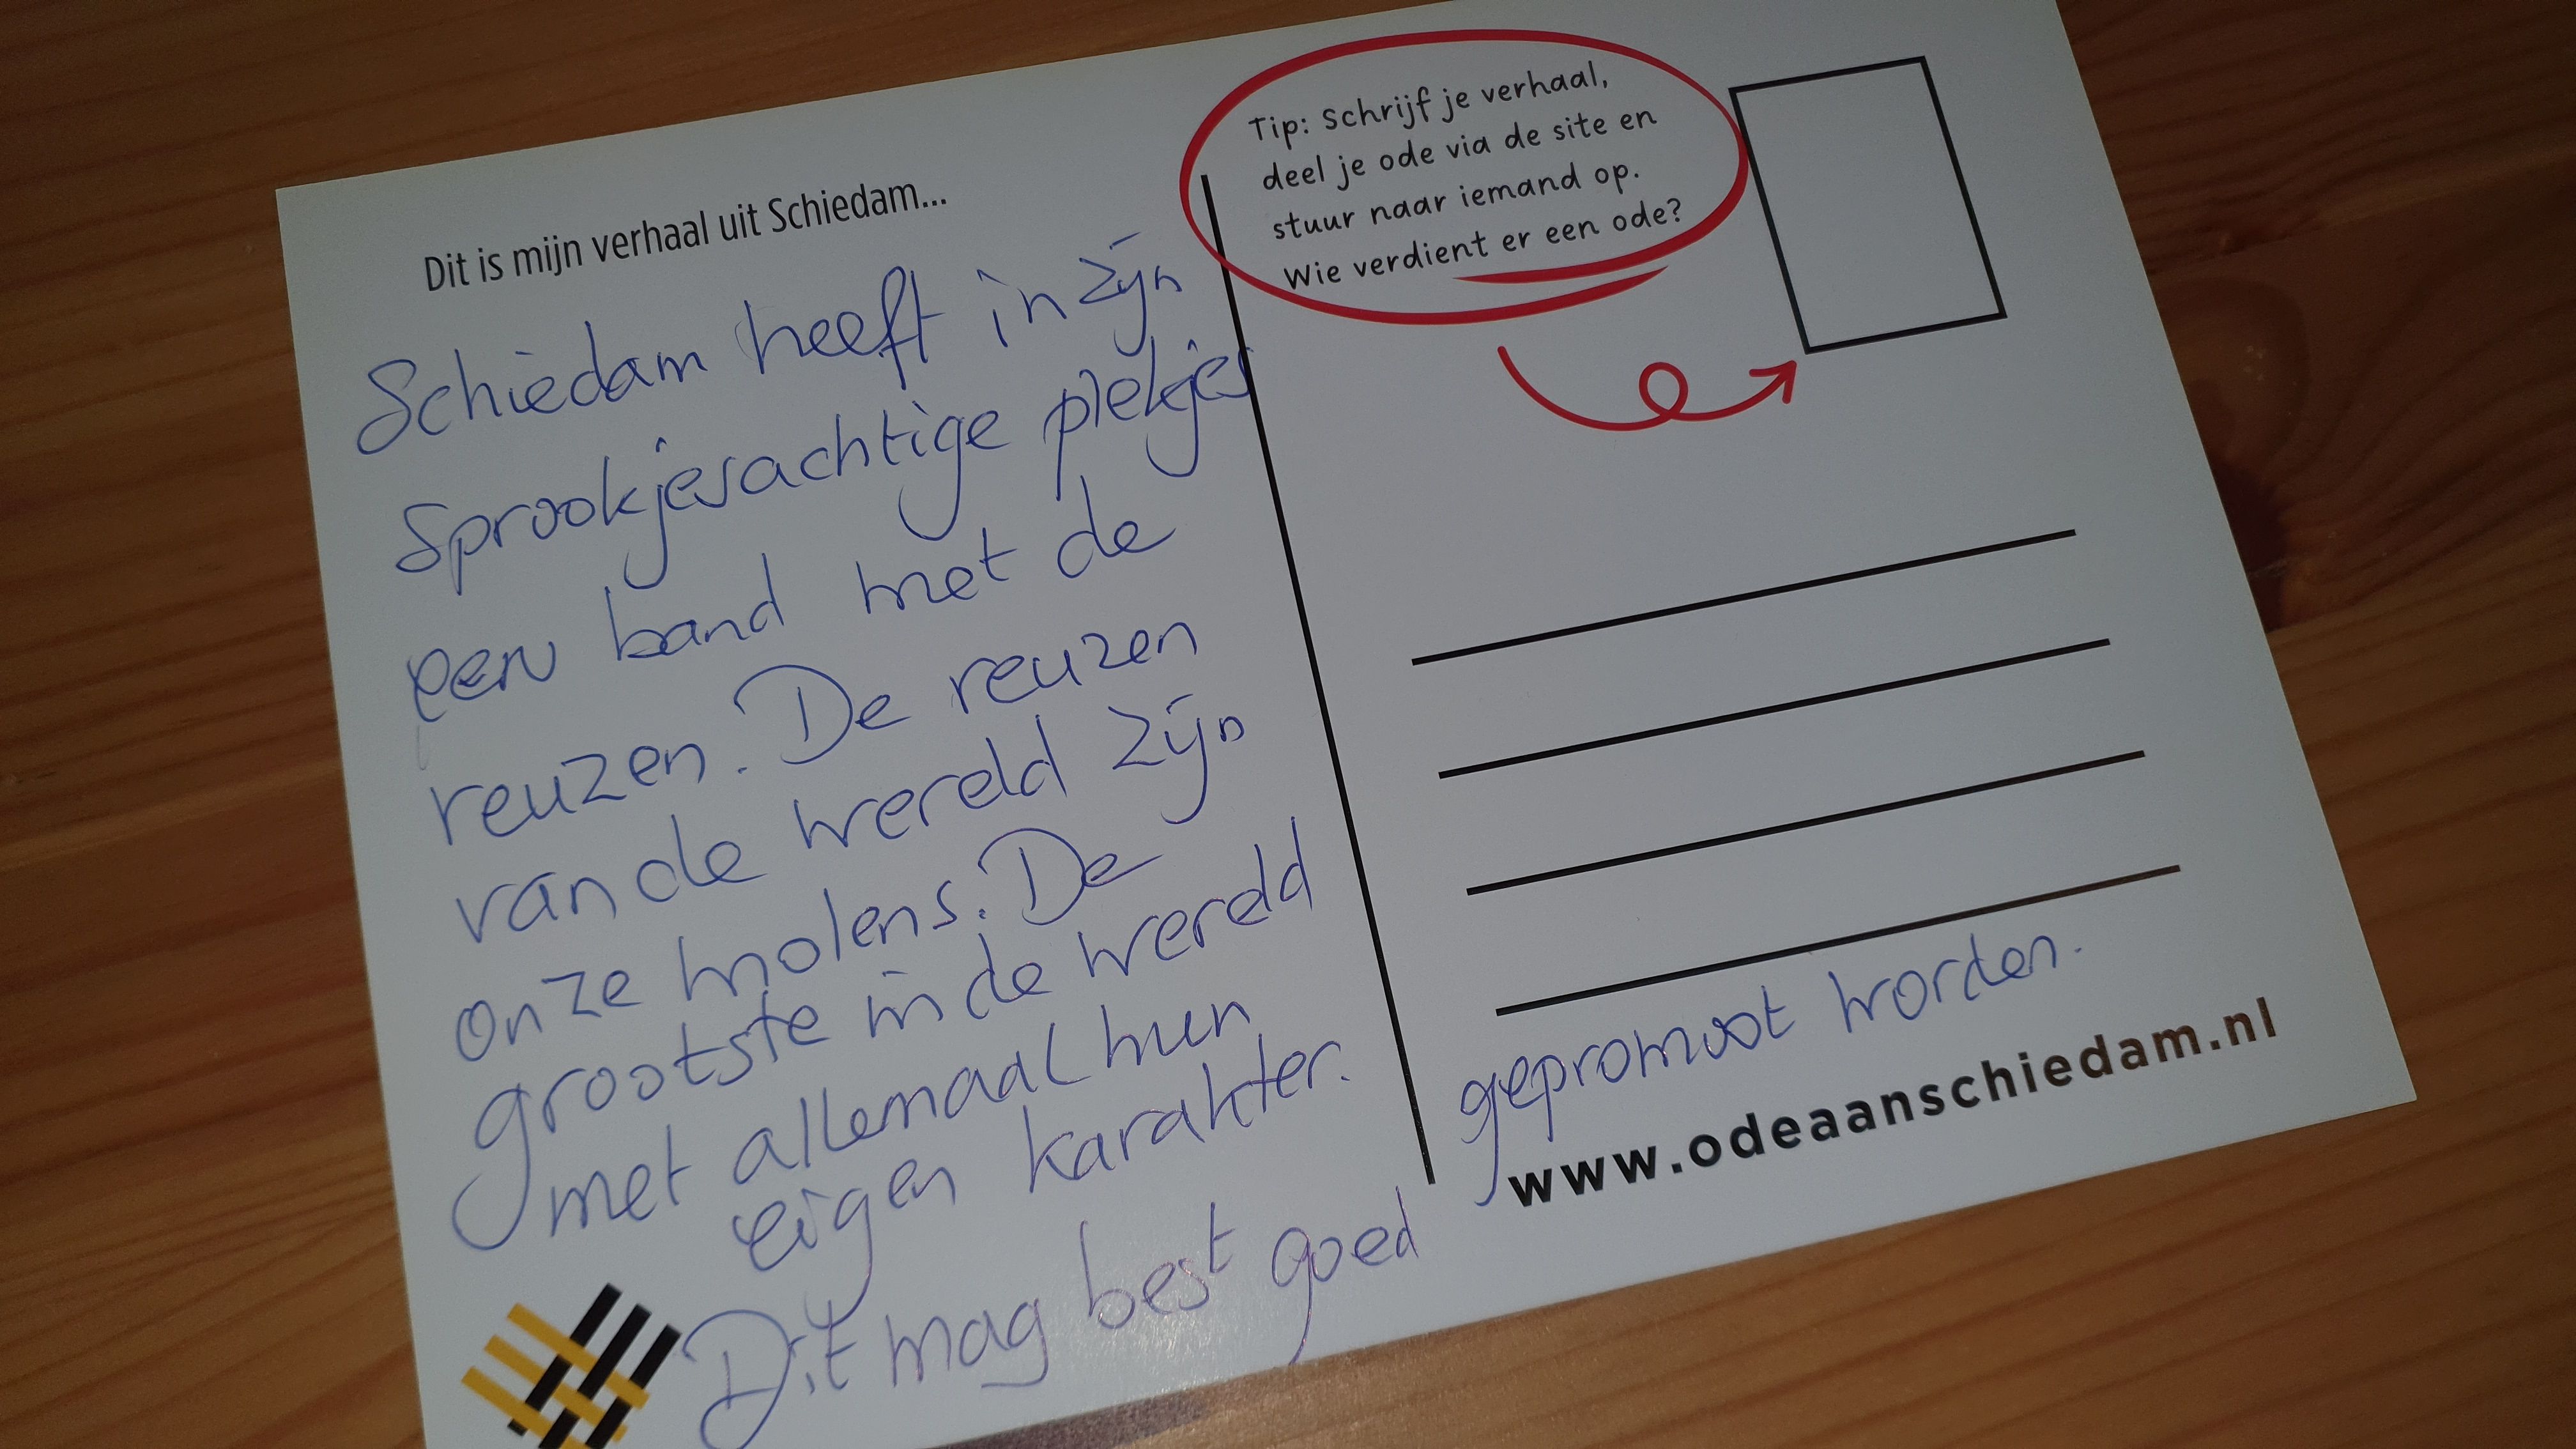 Dit is mijn verhaal uit Schiedam...
Schiedam heeft in zijn
Sprookjesachtige plekjes
een band met de
reuzen. De reuzen
van de wereld zijn
onze molens. De
grootste in de wereld
met allemaal hun
eigen karakter.
Dit mag best goed
gepromoot worden.
Tip: Schrijf je verhaal,
deel je ode via de site en
stuur naar iemand op.
Wie verdient er een ode?
www.odeaanschiedam.nl